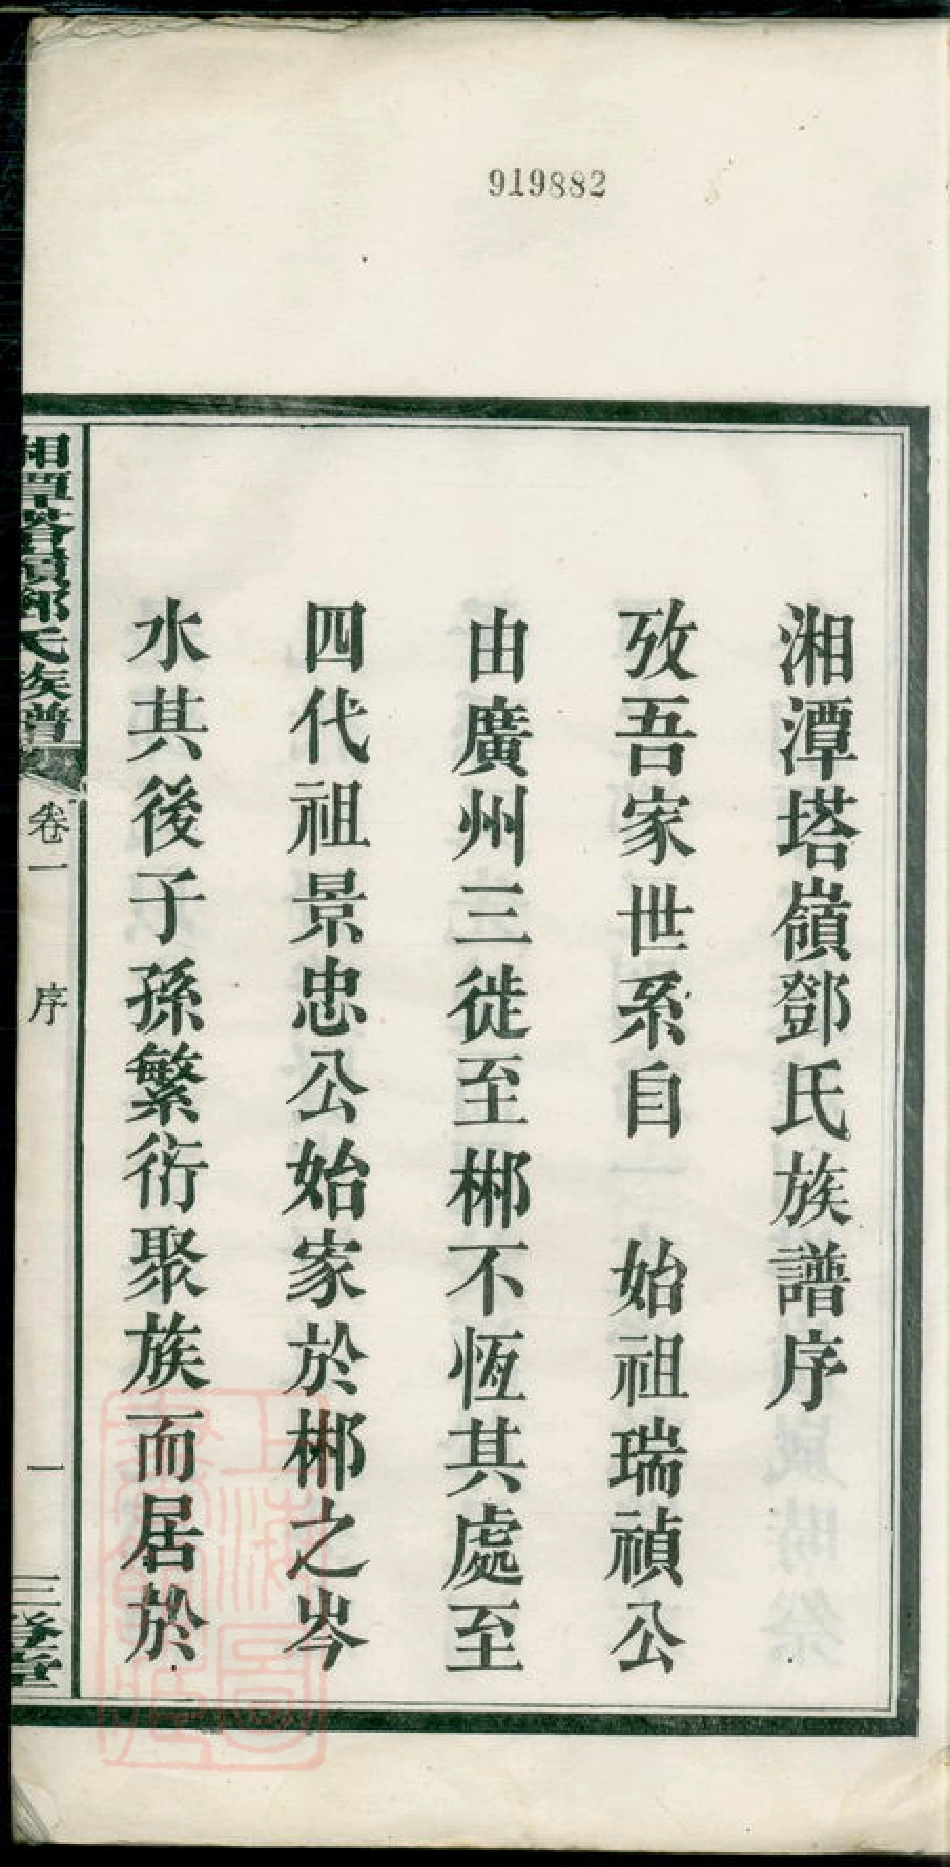 919882
湘潭塔嶺鄧氏族譜序
攷吾家世系自　始祖瑞禎公
由廣州三徙至郴不恆其處至
四代祖景忠公始家於郴之岑
水其後子孫繁衍聚族而居於
湘潭塔嶺鄧氏族譜
卷一　序
一
上海圖書館藏